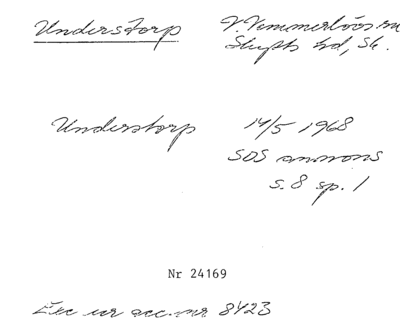 Understorp V. Vemmerlövs sn
Skytts hd, Sk.
Understorp 14/5 1968
SDS annons
s. 8 sp. 1
Nr 24169
Exc ur acc.nr 8423